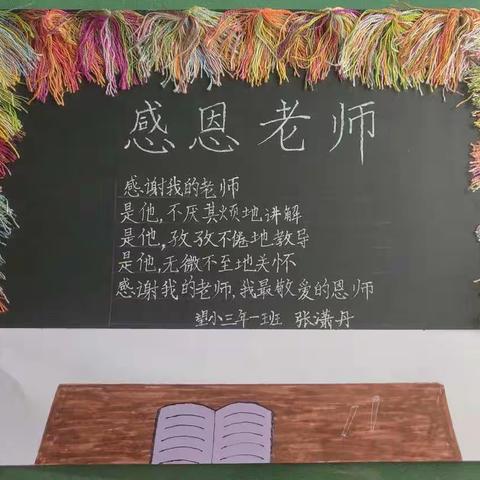 感恩老师
感谢我的老师
是他,不厌其烦地讲解
是他,孜孜不倦地教导
是他,无微不至地关怀
感谢我的老师,我最敬爱的恩师
望小三年一班 张潇丹